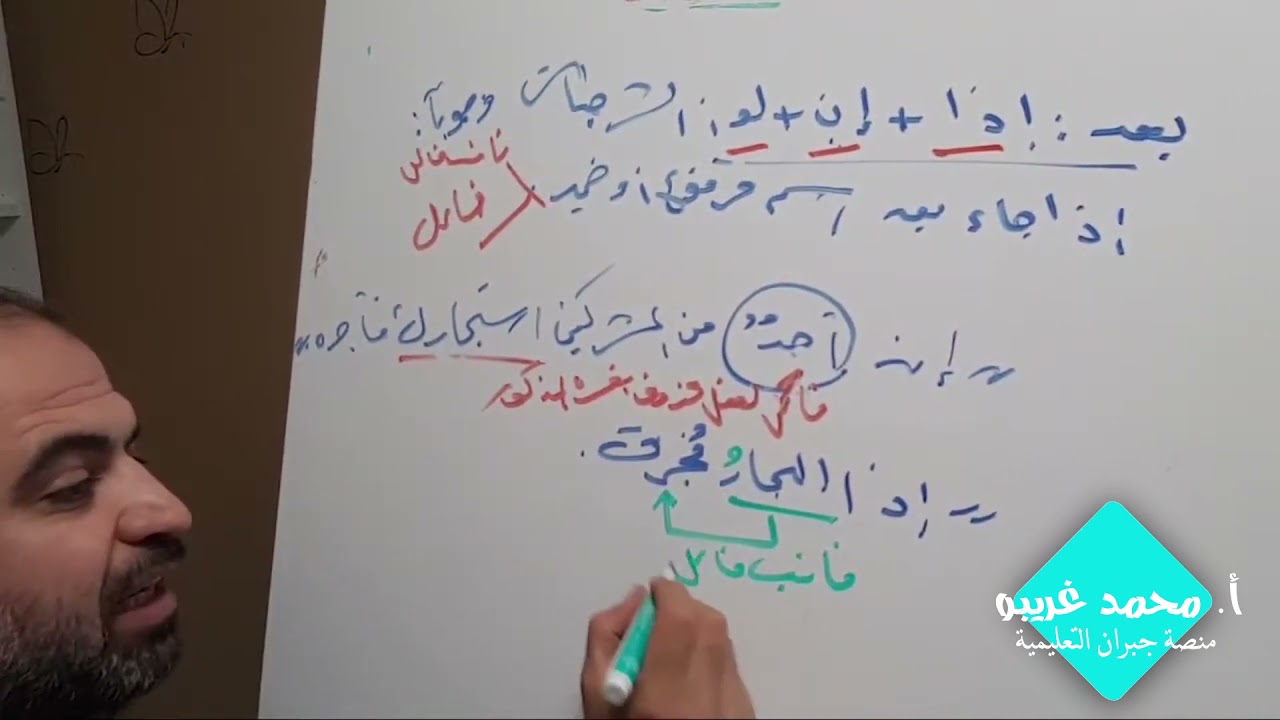 بعد : إذا + إن + لو الشرطيات وجوباً:
إذا جاء بعد اسم مرفوع أو ضمير
نائب فاعل
فاعل
إن أحدٌ من المشركين استجارك فأجره
فاعل لفعل محذوف يفسره المذكور
إذا البحارُ فُجرت.
نائب فاعل
أ. محمد غريبو
منصة جبران التعليمية